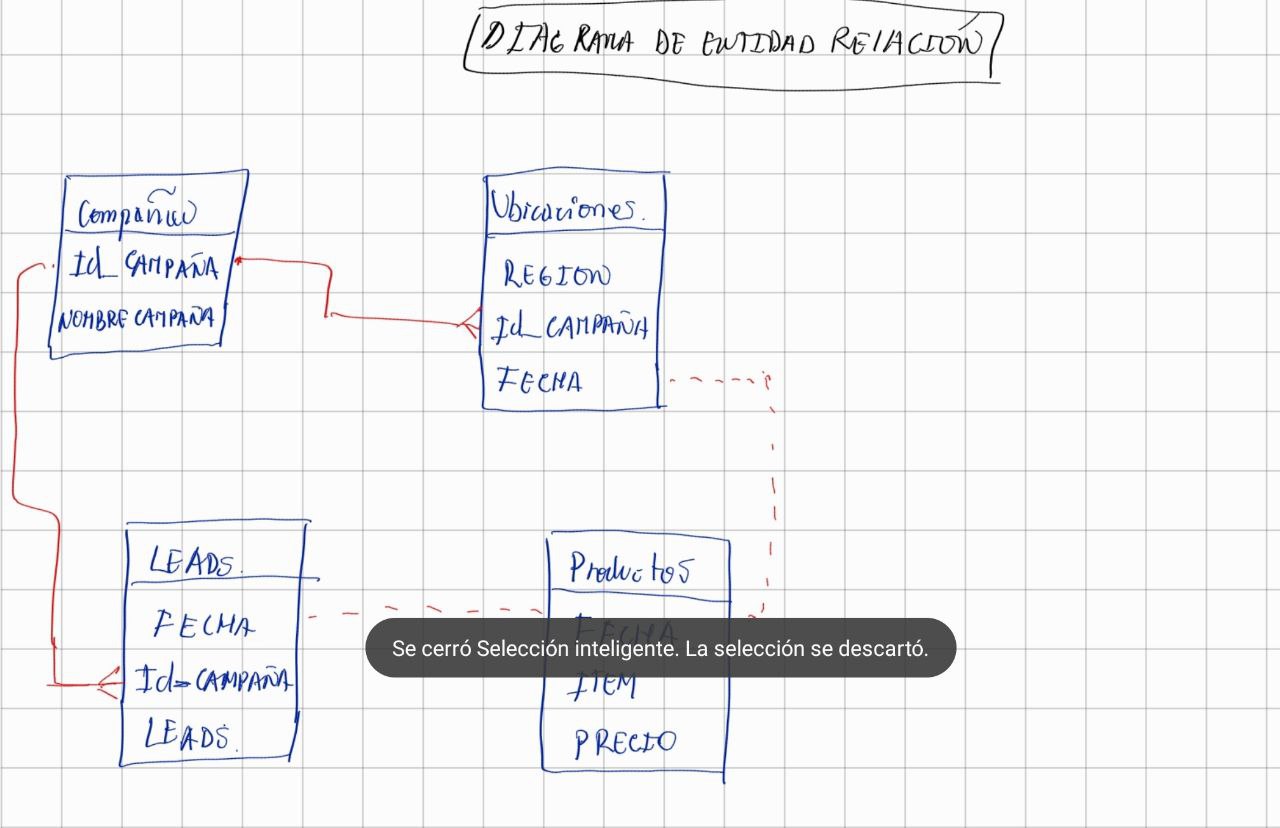 DIAGRAMA DE ENTIDAD RElACIÓN
Compañia
Id_CAMPAÑA
NOMBRE CAMPAÑA
Ubicaciones.
REGION
Id_CAMPAÑA
FECHA
LEADS.
FECHA
Id_CAMPAÑA
LEADS.
Productos
FECHA
Se cerró Selección inteligente. La selección se descartó.
ITEM
PRECIO